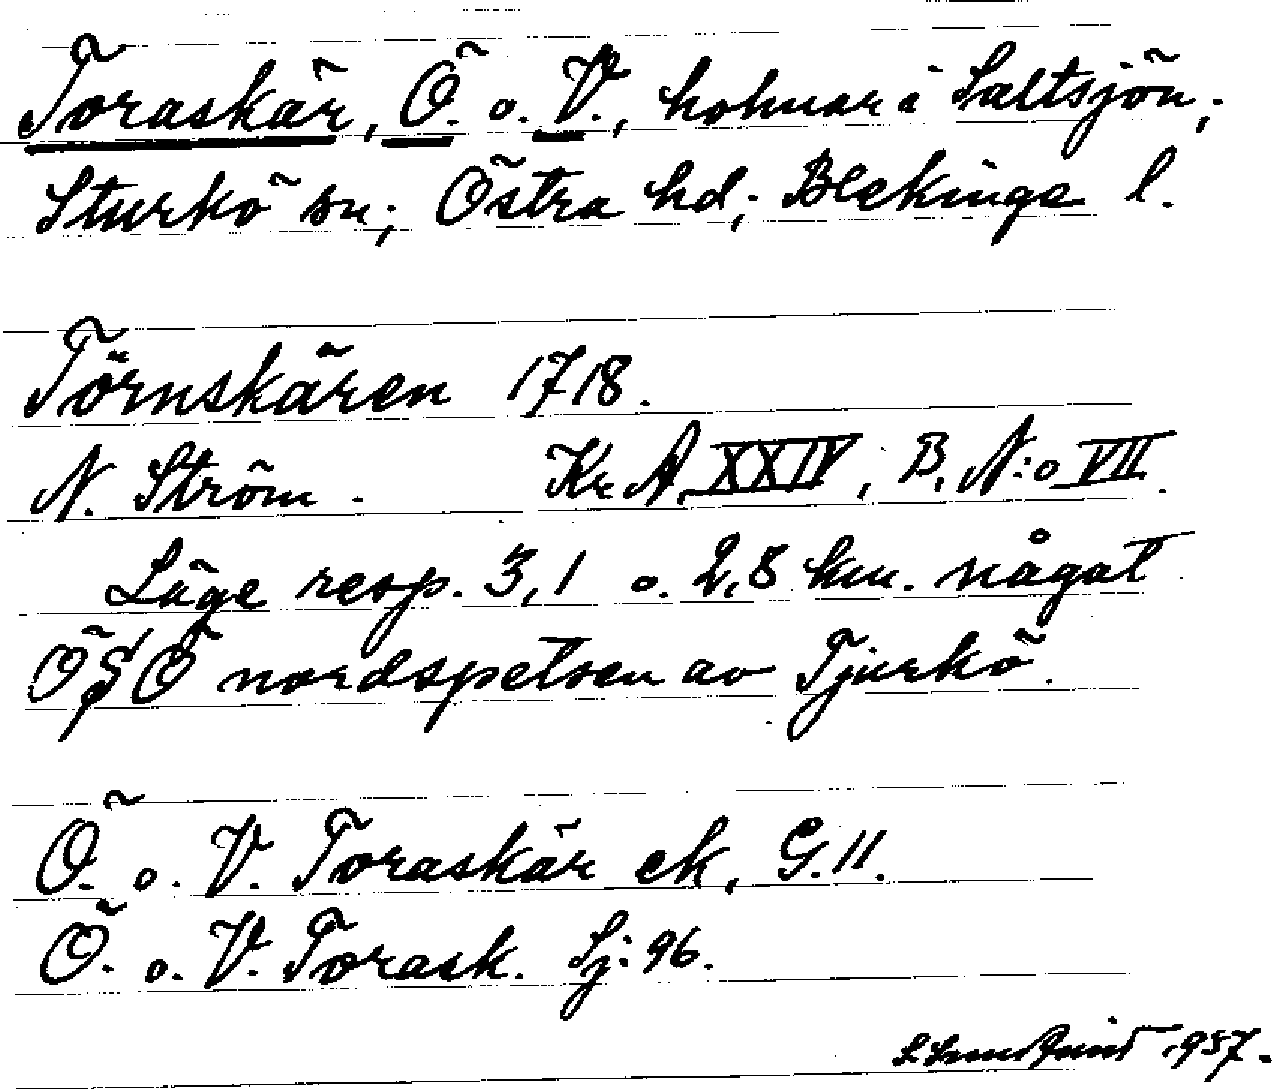 Toraskär, Ö. o. V., holmar i Saltsjön,
Sturkö sn; Östra hd; Blekinge l.
Törnskären 1718.
N. Ström. Kr. A. XXIV, B, N:o VII.
Läge resp. 3,1 o. 2,8 km. något
ÖSÖ nordspetsen av Tjurkö.
Ö. o. V. Toraskär ek, G. 11.
Ö. o. V. Torask. Sj: 96.
1957.